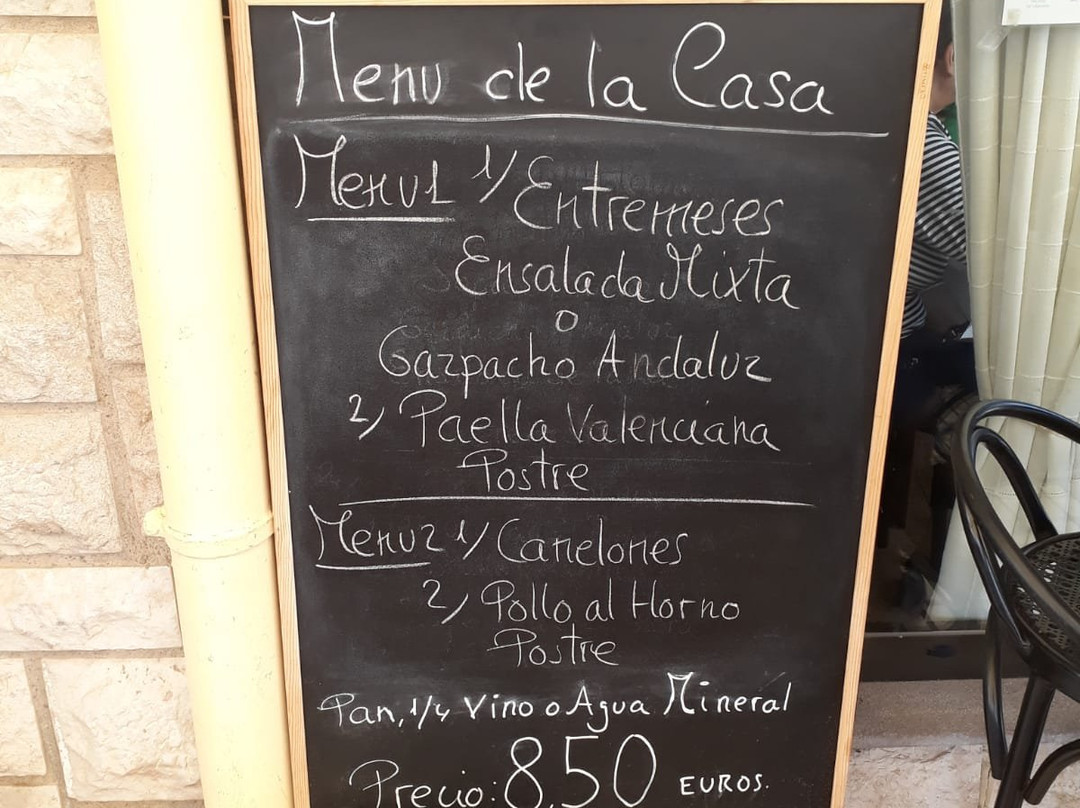 Menu de la Casa
Menu1 1/ Entremeses
Ensalada Mixta
o
Gazpacho Andaluz
2/ Paella Valenciana
Postre
Menu2 1/ Canelones
2/ Pollo al Horno
Postre
Pan, 1/4 Vino o Agua Mineral
Precio: 8,50 EUROS.